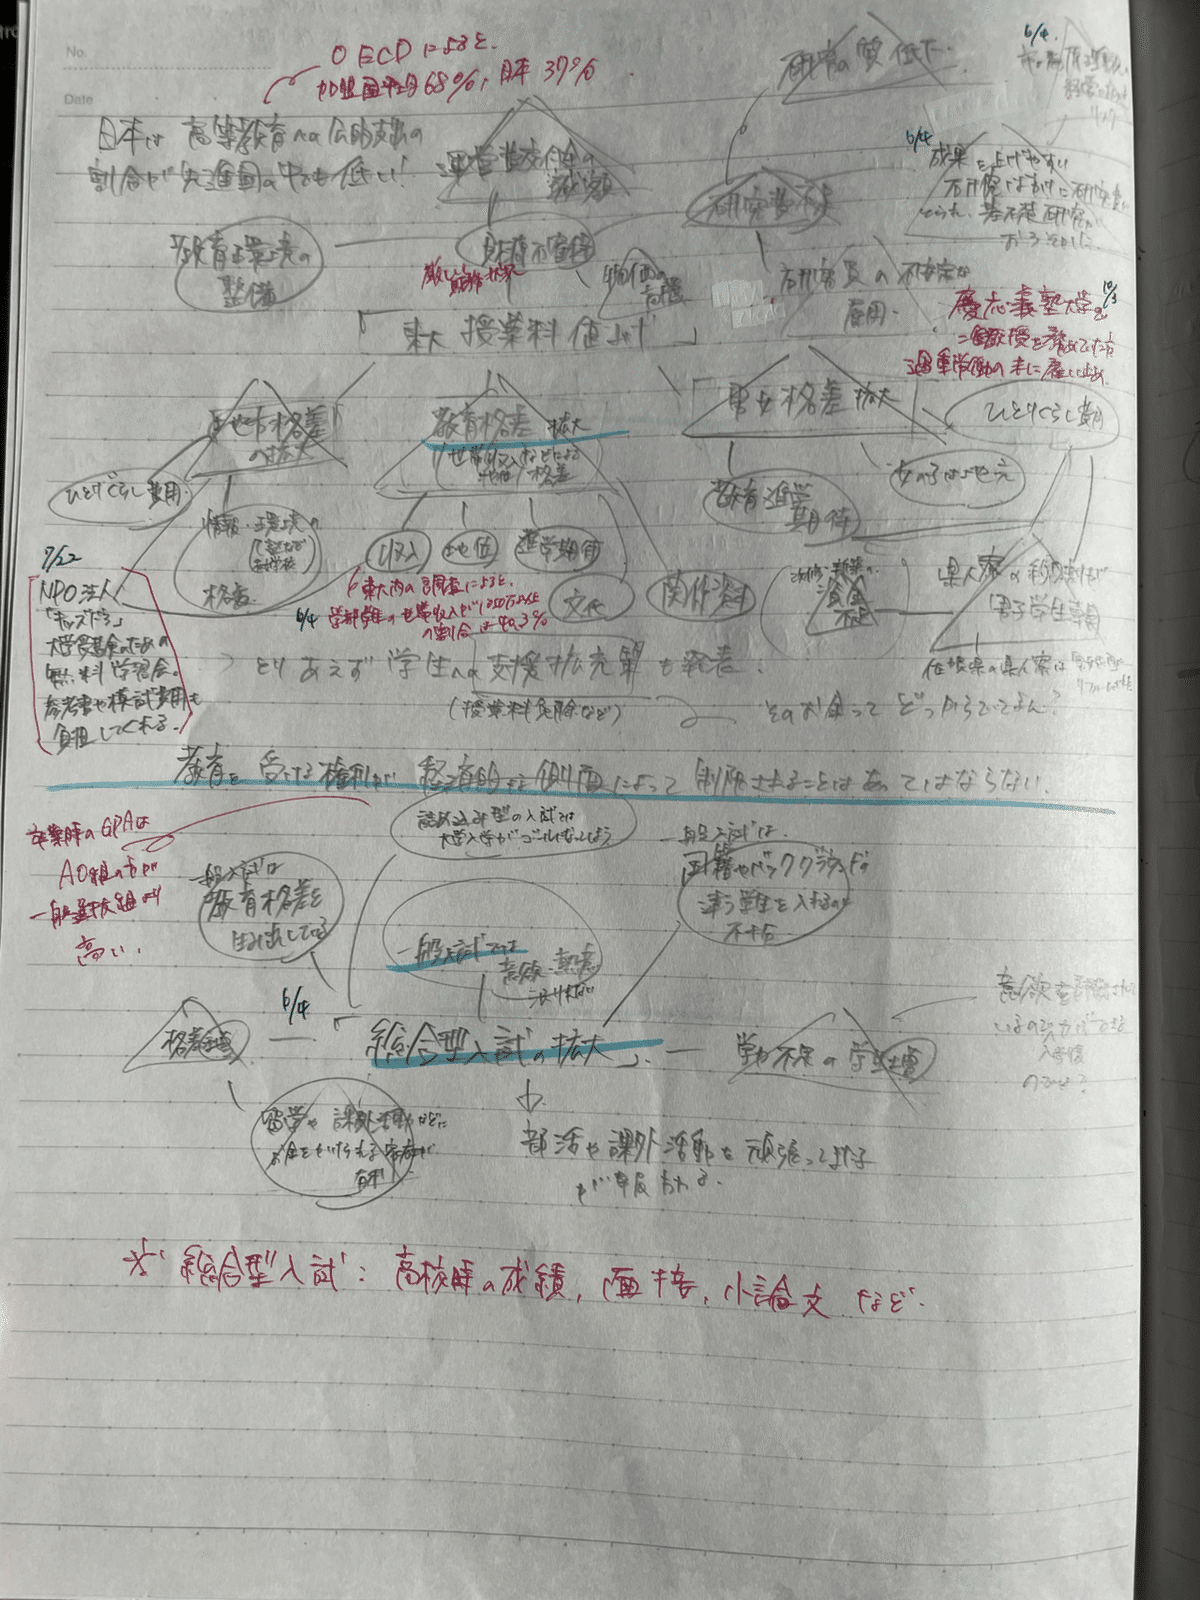 No.
Date
OECDによると、
加盟国平均68%、日本37%
日本は高等教育への公的支出の
割合が先進国の中でも低い!
研究の質低下
6/4
運営費交付金の
減額
研究費不足
6/4
成果を上げやすい
研究ばかりに研究費が
とられ、基礎研究が
おろそかに
教育環境の
整備
財源不安定
厳しい財務状況
物価の
高騰
研究者の不安定な
雇用
「東大授業料値上げ」
10/3
慶応義塾大学で
の末に雇い止め
地方格差
の拡大
教育格差拡大
(世帯収入などによる
格差
「男女格差拡大
ひとりぐらし費用
ひとりぐらし費用
女の子は地元
教育・進学
期待
情報・環境の
格差
収入
地位
進学期待
文化
関係資本
東大内の調査によると、
6/4
学部学生の世帯収入が1050万円以上
の割合は40.3%
資金
不足
県人寮の約8割が
男子学生専用
7/22
NPO法人
「キッズドア」
大学受験のための
無料学習会。
参考書や模試費用も
負担してくれる。
とりあえず学生への支援拡充策も発表。
(授業料免除など)
そのお金ってどっからでてるん?
教育を受ける権利が経済的な側面によって制限されることはあってはならない。
詰め込み型の入試では
大学入学がゴールになってしまう
卒業時のGPAは
AO組の方が
一般選抜組より
高い。
一般入試は
教育格差を
生み出している
一般入試では
意欲・熱意
一般入試は、
国籍やバックグラウンドの
違う学生を入れるのに
不十分
格差
6/4
「総合型入試の拡大」
勤勉不足の学生増
意欲を評価されて
いるの
入学後
留学や課外活動などに
お金をかけられる家庭が
有利
部活や課外活動を頑張ってきた子
が報われる。
※総合型入試:高校時の成績,面接,小論文など